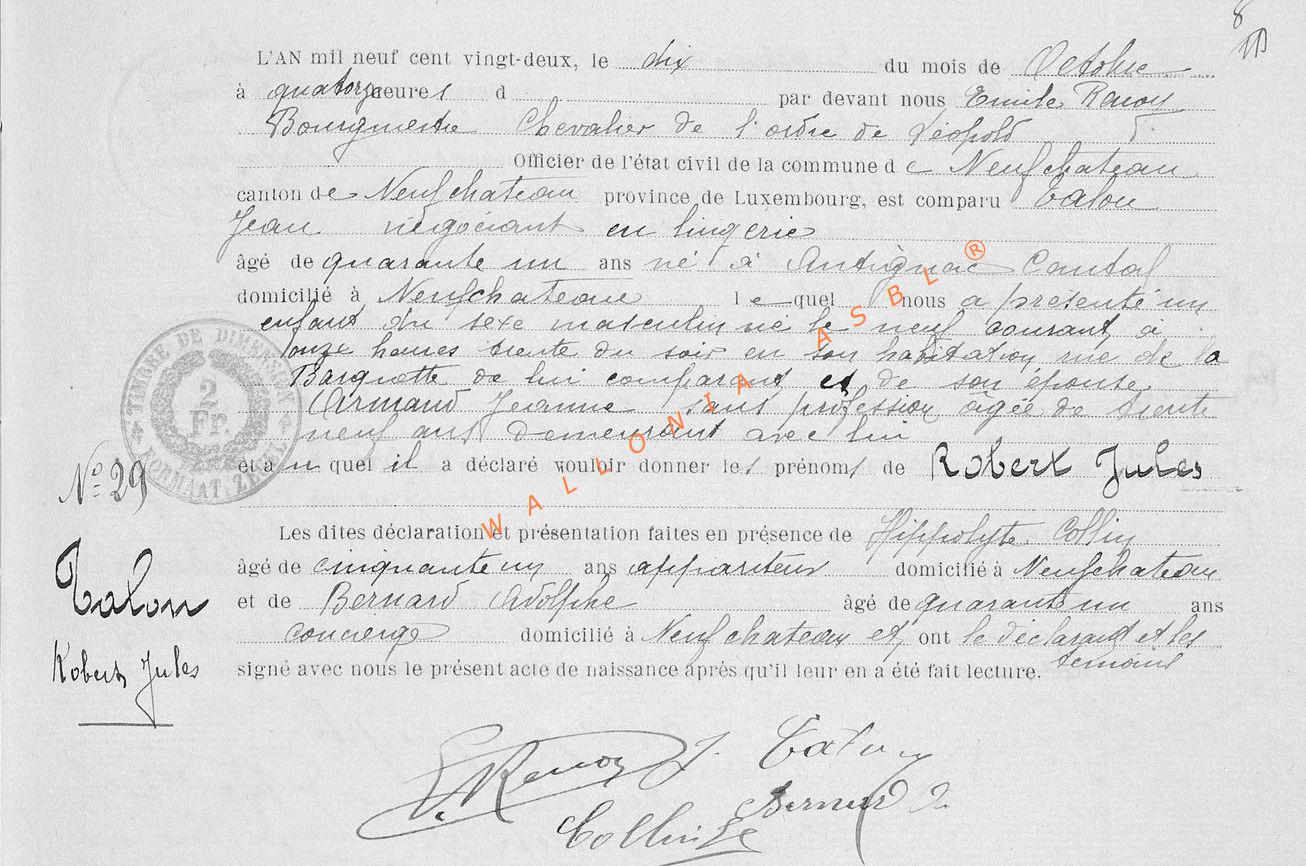 8
L'AN mil neuf cent vingt-deux, le dix du mois de Octobre
à quatorze heures d par devant nous Emile Renoy
Bourgmestre Chevalier de l'ordre de Léopold
Officier de l'état civil de la commune de Neufchateau
canton de Neufchateau province de Luxembourg, est comparu Talon
Jean négociant en lingerie
âgé de quarante un ans né à Antignac Cantal
domicilié à Neufchateau lequel nous a présenté un
enfant du sexe masculin né le neuf courant, à
onze heures trente du soir en son habitation rue de la
Barquette de lui comparant et de son épouse
Armand Jeanne sans profession âgée de trente
neuf ans demeurant avec lui
et auquel il a déclaré vouloir donner les prénoms de Robert Jules
Les dites déclaration et présentation faites en présence de Hippolyte Collin
âgé de cinquante un ans appariteur domicilié à Neufchateau
et de Bernard Adolphe âgé de quarante un ans
concierge domicilié à Neufchateau et, ont le déclarant et les
témoins
signé avec nous le présent acte de naissance après qu'il leur en a été fait lecture.
No 29
Talon
Robert Jules
TIMBRE DE DIMENSION
2
Fr.
FORMAATZEGEL
WALLONIA ASBL ®
E. Renoy J. Talon
Bernard A.
Collin